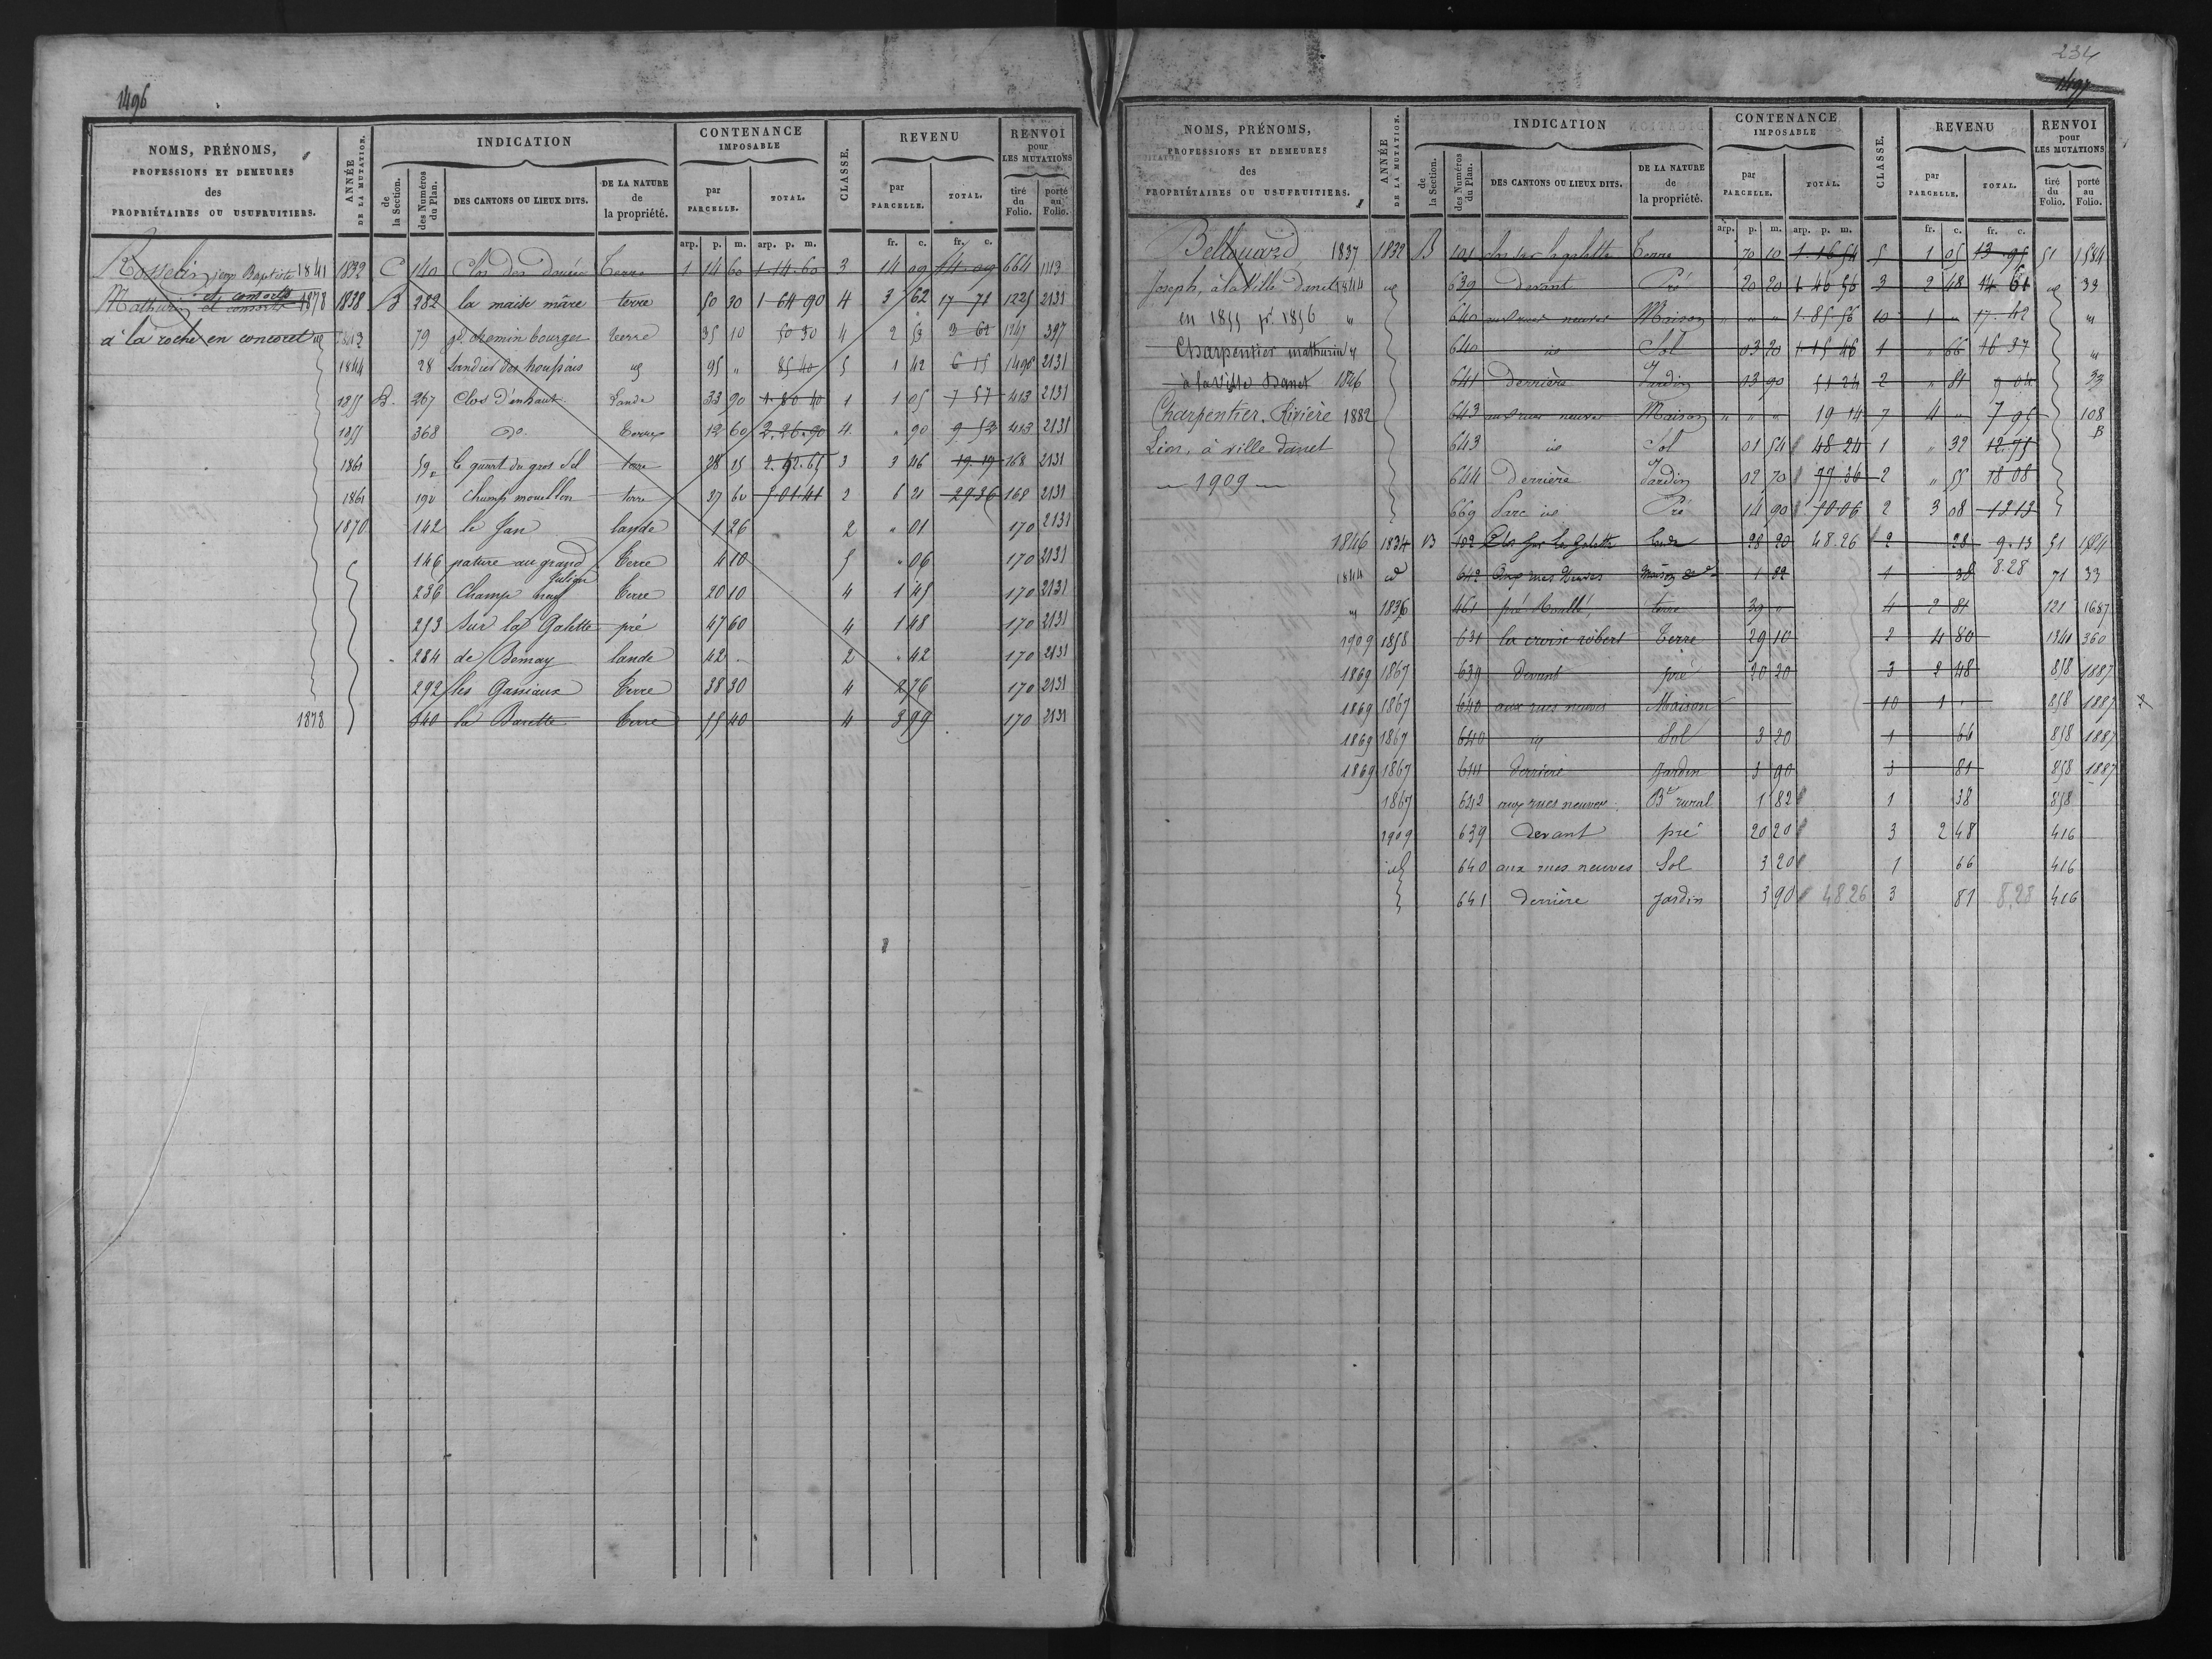 1496
NOMS, PRÉNOMS, PROFESSIONS ET DEMEURES des PROPRIÉTAIRES OU USUFRUITIERS.
ANNÉE DE LA MUTATION.
INDICATION
de la Section.
des Numéros du Plan.
DES CANTONS OU LIEUX DITS.
DE LA NATURE de la propriété.
CONTENANCE IMPOSABLE
par PARCELLE.
TOTAL.
CLASSE.
REVENU
par PARCELLE.
TOTAL.
RENVOI pour LES MUTATIONS
tiré du Folio.
porté au Folio.
arp. p. m. arp. p. m. fr. c. fr. c.
Rosselin jean Baptiste 1841 1832 C 140 Clos des Terre 1 14 60 1.14.60 3 14 09 14.09 664 1113
Mathurin et consorts 1878 1838 B 282 la maise mâre terre 50 30 1 64 90 4 3 62 17 71 1225 2131
à la roche en concoret 1843 79 gd. chemin bourges terre 35 10 50 30 4 2 53 3 62 1347 397
1844 28 Landier des houssais 95 " 85 40 5 1 42 6 15 1490 2131
1855 B. 267 Clos d'enhaut Lande 33 90 1.80 40 1 1 05 7 57 413 2131
1855 368 do. Terre 12 60 2.26.90 4 " 90 9.52 413 2131
1861 59 le quart du gros Sel terre 28 15 2.62.65 3 3 46 19.19 168 2131
1861 190 Champ mouillon terre 37 60 5 01.41 2 6 21 29.36 168 2131
1870 142 le Jan lande 1 26 2 " 01 170 2131
146 pature au grand Julien Terre 4 10 5 " 06 170 2131
236 Champ neuf Terre 20 10 4 1 45 170 2131
253 Sur la Galette pré 47 60 4 1 48 170 2131
284 de Bemay lande 42 2 " 42 170 2131
292 les Gassiaux Terre 38 30 4 2 76 170 2131
1878 340 la Barette Terre 55 40 4 3 99 170 2131
234
1497
NOMS, PRÉNOMS, PROFESSIONS ET DEMEURES des PROPRIÉTAIRES OU USUFRUITIERS.
ANNÉE DE LA MUTATION.
INDICATION
de la Section.
des Numéros du Plan.
DES CANTONS OU LIEUX DITS.
DE LA NATURE de la propriété.
CONTENANCE IMPOSABLE
par PARCELLE.
TOTAL.
CLASSE.
REVENU
par PARCELLE.
TOTAL.
RENVOI pour LES MUTATIONS
tiré du Folio.
porté au Folio.
arp. p. m. arp. p. m. fr. c. fr. c.
Bellouard 1837 1832 B 101 clos sur la galette Terre 70 10 1.16 54 5 1 05 13.95 51 1584
Joseph, à la Ville Danet 1844 id 639 devant Pré 20 20 1 46 56 3 2 48 14 61 id 33
en 1855 pr. 1856 " 640 aux rues neuves Maison " " " 1.85.56 10 1 " 17.42 "
Charpentier mathurin 640 id Sol 03 20 1.15 46 1 " 66 16 37 "
à la Ville Danet 1846 641 Derrière Jardin 03 90 51 24 2 " 81 9 04 33
Charpentier. Rivière 1882 643 aux rues neuves Maison " " " 19 14 7 4 " 7 95 108
Lion, à ville danet 643 id Sol 01 54 48 24 1 " 32 12.75 B
— 1909 — 644 Derrière Jardin 02 70 77.36 2 " 55 18 08
669 Parc id Pré 14 90 50 06 2 3 08 12 13
1846 1834 B 102 Clos sur la Galette lande 28 20 48.26 2 28 9.13 51 1584
1844 id 642 Aux rues neuves maison 1 82 1 38 8.28 71 33
" 1836 461 pré Rouillé terre 39 0 4 2 81 121 1687
1909 1858 631 la croix robert Terre 29 10 2 4 80 1341 360
1869 1867 639 Devant pré 20 20 3 2 48 858 1887
1869 1867 640 aux rues neuves Maison 10 1 " 858 1887
1869 1867 640 id Sol 3 20 1 66 858 1887
1869 1867 641 derriere jardin 3 90 3 81 858 1887
1867 642 aux rues neuves Bt rural 1 82 1 38 858
1909 639 devant pré 20 20 3 2 48 416
id 640 aux rues neuves Sol 3 20 1 66 416
641 derrière jardin 3 90 48 26 3 81 8,28 416